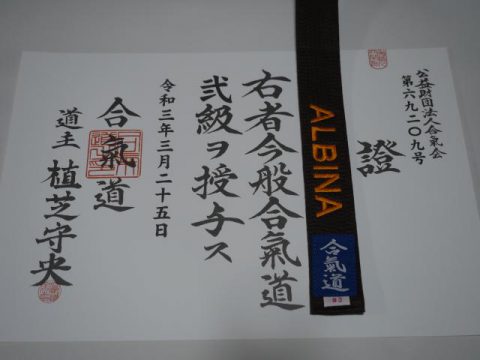 公益財団法人合氣会
第六九二〇九号
證
ALBINA
合氣道
右者今般合氣道
弐級ヲ授与ス
令和三年三月二十五日
合氣道
道主 植芝守央